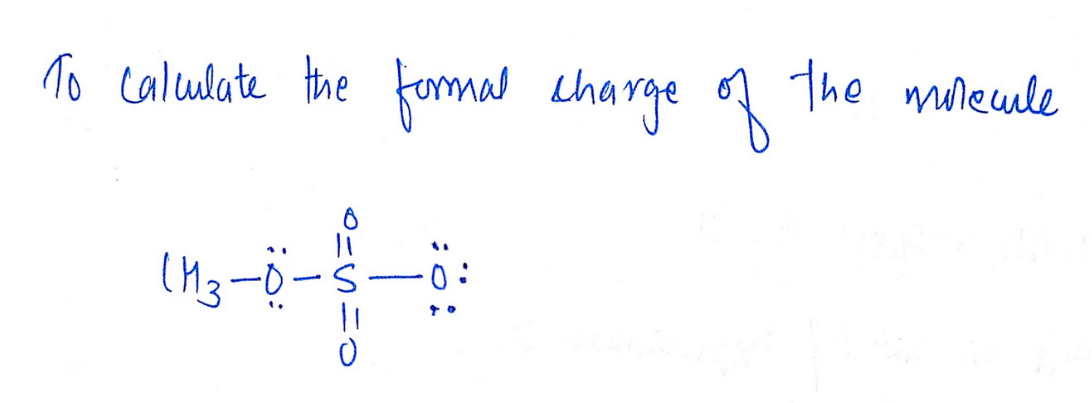 To calculate the formal charge of the molecule
O
||
CH3-Ö-S-O:
||
O